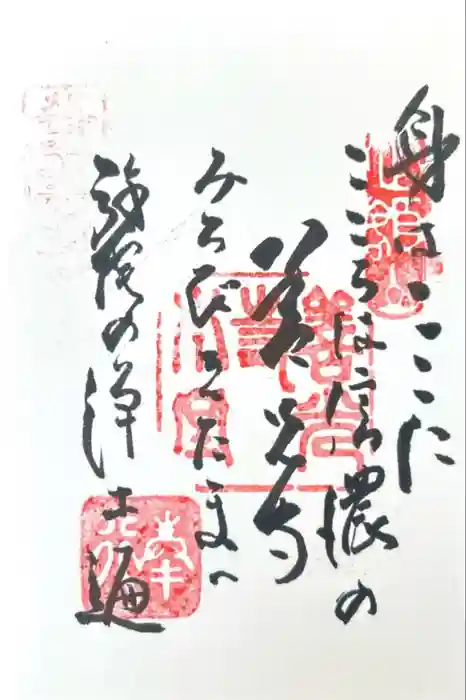 身はここに
こころは信濃の
善光寺
みちびきたまへ
弥陀の浄土遍